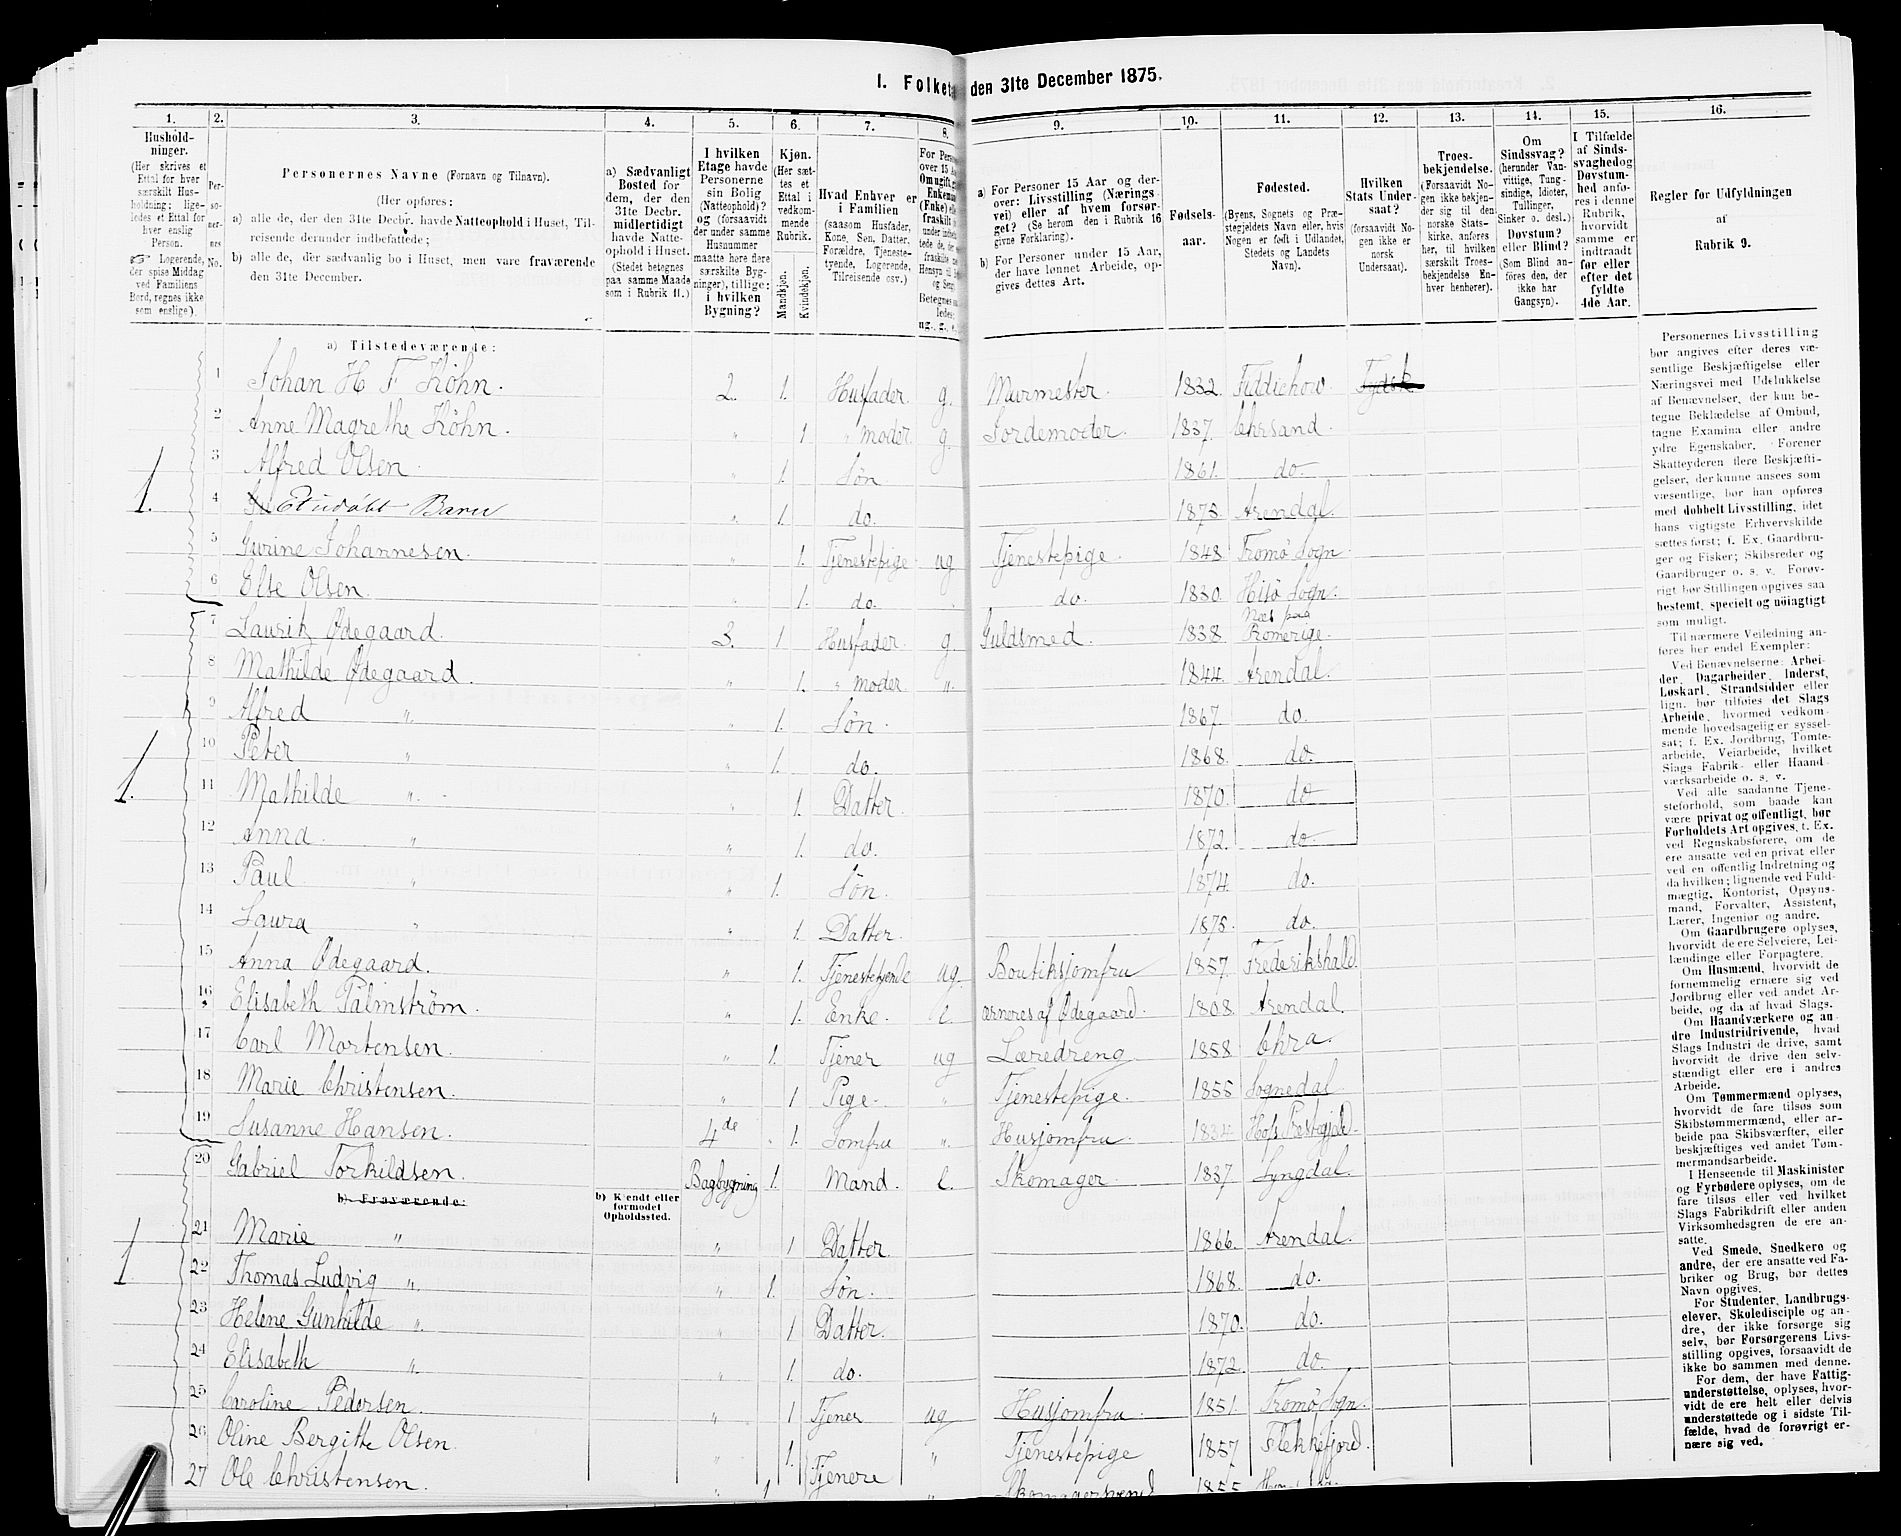 1. Folketæ den 31te December 1875.
1. 2. 3. 4. 5. 6. 7. 8. 9. 10. 11. 12. 13. 14. 15. 16.
Hushold-
ninger.
(Her skrives et
Ettal for hver
særskilt Hus-
holdning; lige-
ledes et Ettal for
hver enslig
Person.
☞ Logerende,
der spise Middag
ved Familiens
Bord, regnes ikke
som enslige).
Per-
so-
ner-
nes
No.
Personernes Navne (Fornavn og Tilnavn).
(Her opføres:
a) alle de, der den 31te Decbr. havde Natteophold i Huset, Til-
reisende derunder indbefattede;
b) alle de, der sædvanlig bo i Huset, men vare fraværende
den 31te December.
a) Sædvanligt
Bosted for
dem, der den
31te Decbr.
midlertidigt
havde Natte-
ophold i Huset.
(Stedet betegnes
paa samme Maade
som i Rubrik 11.)
I hvilken
Etage havde
Personerne
sin Bolig
(Natteophold)?
og (forsaavidt
der under samme
Husnummer
maatte høre flere
særskilte Byg-
ninger), tillige:
i hvilken
Bygning?
Kjøn.
(Her sæt-
tes et
Ettal i
vedkom-
mende
Rubrik.
Mandkjøn.
Kvindekjøn.
Hvad Enhver er
i Familien
(saasom Husfader,
Kone, Søn, Datter,
Forældre, Tjeneste-
tyende, Logerende,
Tilreisende osv.)
For Person
over 15 Aa
Omugift, g
Enkem
(Enke) el
fraskilt
a) For Personer 15 Aar og der-
over: Livsstilling (Nærings-
vei) eller af hvem forsør-
get? (Se herom den i Rubrik 16
givne Forklaring).
b) For Personer under 15 Aar,
der have lønnet Arbeide, op-
gives dettes Art.
Fødsels-
aar.
Fødested.
(Byens, Sognets og Præ-
stegjeldets Navn eller, hvis
Nogen er født i Udlandet,
Stedets og Landets
Navn).
Hvilken
Stats Under-
saat?
(forsaavidt No-
gen ikke er
norsk
Undersaat).
Troes-
bekjendelse.
(Forsaavidt No-
gen ikke bekjen-
der sig til den
norske Stats-
kirke, anføres
her, til hvilken
særskilt Troes-
bekjendelse En-
hver henhører).
Om
Sindssvag?
(herunder Van-
vittige, Tung-
sindige, Idioter,
Tullinger,
Sinker o. desl.)
Døvstum?
eller Blind?
(Som Blind an-
føres den, der
ikke har
Gangsyn).
I Tilfælde
af Sinds-
svaghed og
Døvstum-
hed anfø-
res i denne
Rubrik,
hvorvidt
samme er
indtraadt
før eller
efter det
fyldte
4de Aar.
Regler for Udfyldningen
af
Rubrik 9.
a) Tilstedeværende:
1 Johan H F Köhn. 2. 1. Husfader. g. Murmester. 1832. Fiddichow Tydsk
2 Anne Magrethe Köhn. " 1 " moder g. Jordemoder. 1837. Chrsand.
3 Alfred Olsen. " 1. Søn 1861. do
1. 4 Et udøbt Barn " 1. do. 1875. Arendal.
5 Gurine Johannesen. " 1. Tjenestepige ug Tjenestepige. 1848. Tromø Sogn
6 Else Olsen. " 1. do. " do. 1830. Hisø Sogn.
7 Lauritz Ødegaard. 3. 1 Husfader. g. Guldsmed. 1838. Næs paa Romerige.
8 Mathilde Ødegaard. " 1. " moder ". 1844. Arendal.
9 Alfred " " 1. Søn. 1867. do.
10 Peter " " 1. do. 1868. do.
1. 11 Mathilde " " 1. Datter. 1870. do
12 Anna. " " 1. do. 1872. do
13 Paul " " 1. Søn. 1874. do.
14 Laura " " 1. Datter. 1875. do.
15 Anna Ødegaard. " 1. Tjenestetyende ug. Boutiksjomfru 1857. Frederikshald
16 Elisabeth Palmström. " 1. Enke. e. ærneres af Ødegaard. 1808. Arendal.
17 Carl Mortensen. " 1. Tjener ug Læredreng. 1858 Chra.
18 Marie Christensen. " 1 Pige. " Tjenestepige. 1855 Sognedal
19 Susanne Hansen. 4de 1. Jomfru " Husjomfru. 1834. Hofs Prestegjeld
20 Gabriel Torkildsen. Bagbygning 1. Mand. e. Skomager. 1837 Lyngdal.
b) Fraværende:
b) Kjendt eller
formodet
Opholdssted.
21 Marie " " 1 Datter. 1866. Arendal.
1 22 Thomas Ludvig " " 1. Søn. 1868. do.
23 Helene Gunhilde " " 1 Datter. 1870. do.
24 Elisabeth " " 1. do. 1872. do.
25 Caroline Pedersen. " 1 Tjener ug Husjomfru. 1851. Tromø Sogn.
26 Oline Bergitte Olsen. " 1. " Tjenestepige 1857 Flekkefjord.
27 Ole Christensen. " 1 Tjenere " Skomagersvend 1855
Personernes Livsstilling
bør angives efter deres væ-
sentlige Beskjæftigelse eller
Næringsvei med Udelukkelse
af Benævnelser, der kun be-
tegne Beklædelse af Ombud,
tagne Examina eller andre
ydre Egenskaber. Forener
Skatteyderen flere Beskjæfti-
gelser, der kunne ansees som
væsentlige, bør han opføres
med dobbelt Livsstilling, idet
hans vigtigste Erhvervskilde
sættes først; f. Ex. Gaardbru-
ger og Fisker; Skibsreder og
Gaardbruger o. s. v. Forøv-
rigt bør Stillingen opgives saa
bestemt, specielt og nöiagtigt
som muligt.
Til nærmere Veiledning an-
føres her endel Exempler:
Ved Benævnelserne: Arbei-
der, Dagarbeider, Inderst,
Løskarl, Strandsidder eller
lign. bør tilføies det Slags
Arbeide, hvormed vedkom-
mende hovedsagelig er syssel-
sat; f. Ex. Jordbrug, Tomte-
arbeide, Veiarbeide, hvilket
Slags Fabrik- eller Haand-
værksarbeide o. s. v.
Ved alle saadanne Tjene-
steforhold, som baade kan
være privat og offentligt, bør
Forholdets Art opgives, t. Ex.
ved Regnskabsførere, om de
ere ansatte ved en privat eller
ved en offentlig Indretning og
da hvilken; lignende ved Fuld-
mægtig, Kontorist, Opsyns-
mand, Forvalter, Assistent,
Lærer, Ingeniør og andre.
Om Gaardbrugere oplyses,
hvorvidt de ere Selveiere, Lei-
lændinge eller Forpagtere.
Om Husmænd, hvorvidt de
fornemmelig ernære sig ved
Jordbrug eller ved andet Ar-
beide, og da af hvad Slags.
Om Haandværkere og an-
dre Industridrivende, hvad
Slags Industri de drive, samt
hvorvidt de drive den selv-
stændigt eller ere i andres
Arbeide.
Om Tømmermænd oplyses,
hvorvidt de fare tilsøs som
Skibstømmermænd, eller ar-
beide paa Skibsværfter, eller
beskjæftiges ved andet Tøm-
mermandsarbeide.
I Henseende til Maskinister
og Fyrbødere oplyses, om de
fare tilsøs eller ved hvilket
Slags Fabrikdrift eller anden
Virksomhedsgren de ere an-
satte.
Ved Smede, Snedkere og
andre, der ere ansatte ved Fa-
briker og Brug, bør dettes
Navn opgives.
For Studenter, Landbrugs-
elever, Skoledisciple og an-
dre, der ikke forsørge sig
selv, bør Forsørgerens Livs-
stilling opgives, forsaavidt de
ikke bo sammen med denne.
For dem, der have Fattig-
understøttelse, oplyses, hvor-
vidt de ere helt eller delvis
understøttede og i sidste Til-
fælde, hvad de forøvrigt er-
nære sig ved.